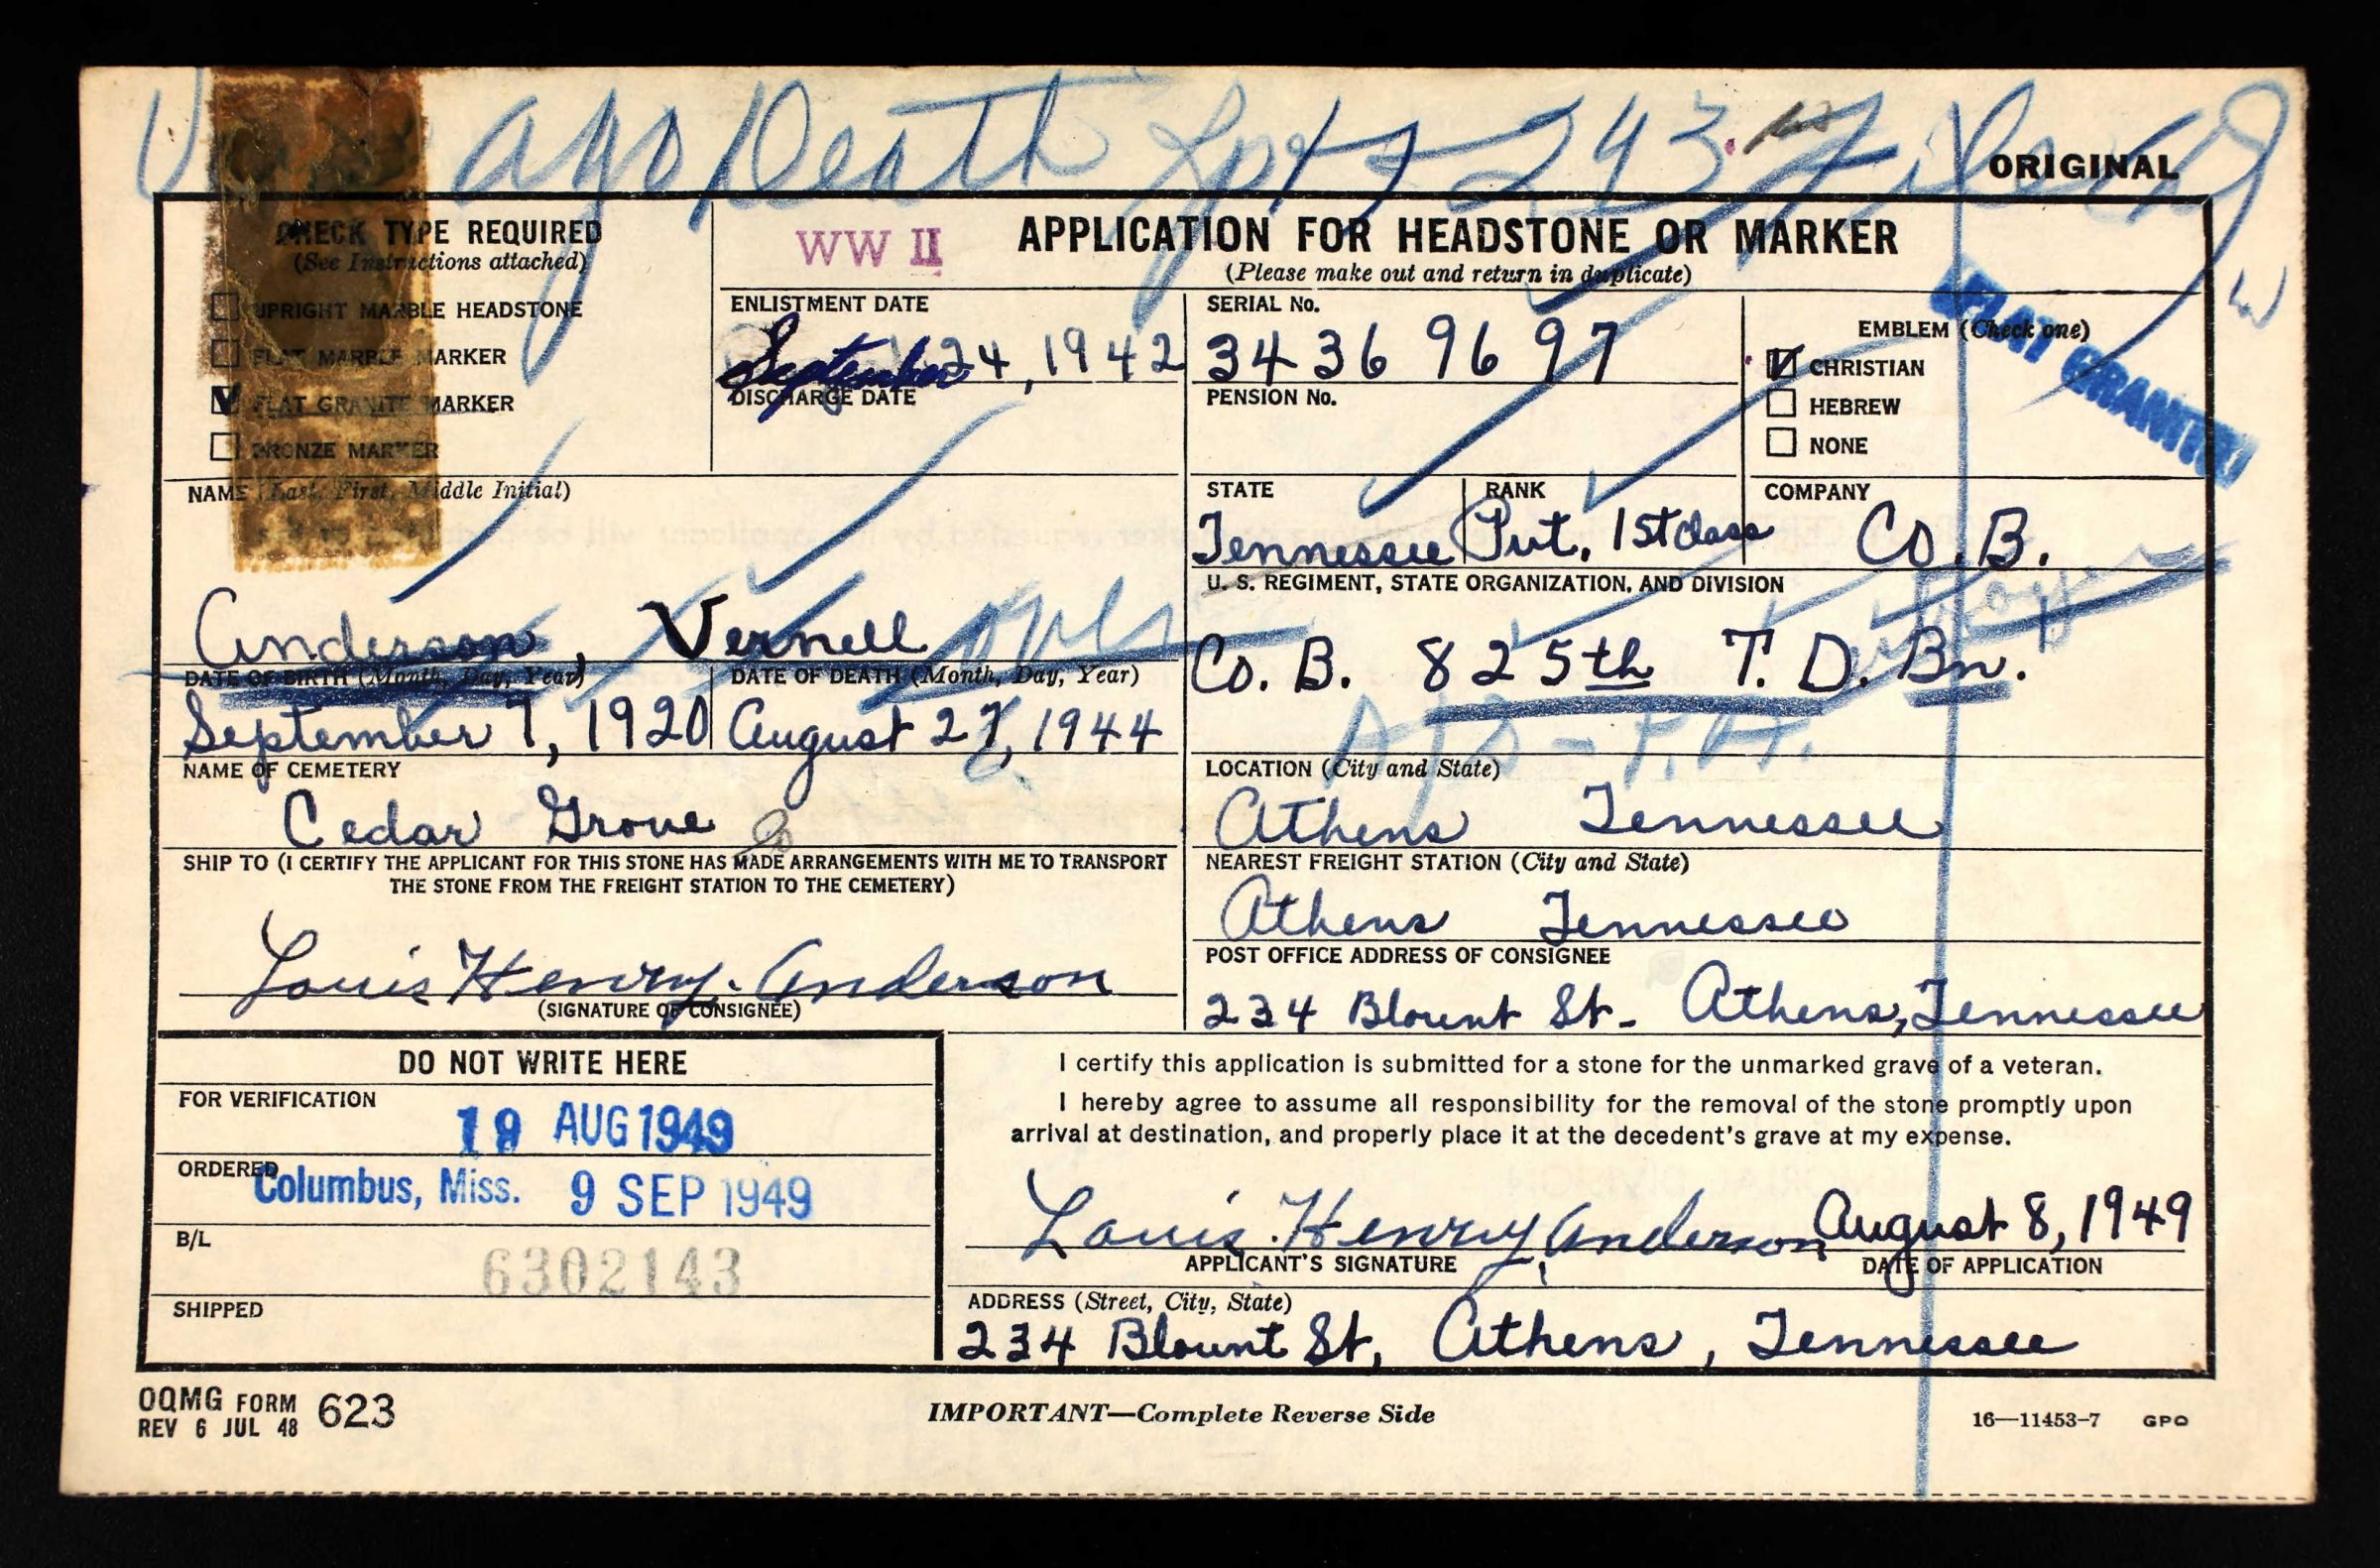 ago Death Rpt 243
ORIGINAL
CHECK TYPE REQUIRED
(See Instructions attached)
UPRIGHT MARBLE HEADSTONE
FLAT MARBLE MARKER
FLAT GRANITE MARKER
BRONZE MARKER
WW II
APPLICATION FOR HEADSTONE OR MARKER
(Please make out and return in duplicate)
ENLISTMENT DATE
September 24, 1942
DISCHARGE DATE
SERIAL No.
34 36 96 97
PENSION No.
EMBLEM (Check one)
CHRISTIAN
HEBREW
NONE
FLAT GRANITE
NAME (Last, First, Middle Initial)
Anderson, Vernell
STATE
Tennessee
RANK
Pvt. 1st class
COMPANY
Co. B.
U. S. REGIMENT, STATE ORGANIZATION, AND DIVISION
Co. B. 825th T. D. Bn.
DATE OF BIRTH (Month, Day, Year)
September 7, 1920
DATE OF DEATH (Month, Day, Year)
August 27, 1944
NAME OF CEMETERY
Cedar Grove
LOCATION (City and State)
Athens Tennessee
SHIP TO (I CERTIFY THE APPLICANT FOR THIS STONE HAS MADE ARRANGEMENTS WITH ME TO TRANSPORT
THE STONE FROM THE FREIGHT STATION TO THE CEMETERY)
Louis Henry. Anderson
(SIGNATURE OF CONSIGNEE)
NEAREST FREIGHT STATION (City and State)
Athens Tennessee
POST OFFICE ADDRESS OF CONSIGNEE
234 Blount St- Athens, Tennessee
DO NOT WRITE HERE
FOR VERIFICATION
19 AUG 1949
ORDERED
Columbus, Miss. 9 SEP 1949
B/L
6302143
SHIPPED
I certify this application is submitted for a stone for the unmarked grave of a veteran.
I hereby agree to assume all responsibility for the removal of the stone promptly upon
arrival at destination, and properly place it at the decedent's grave at my expense.
Louis. Henry Anderson August 8, 1949
APPLICANT'S SIGNATURE DATE OF APPLICATION
ADDRESS (Street, City, State)
234 Blount St, Athens, Tennessee
OQMG FORM 623
REV 6 JUL 48
IMPORTANT—Complete Reverse Side
16—11453-7 GPO